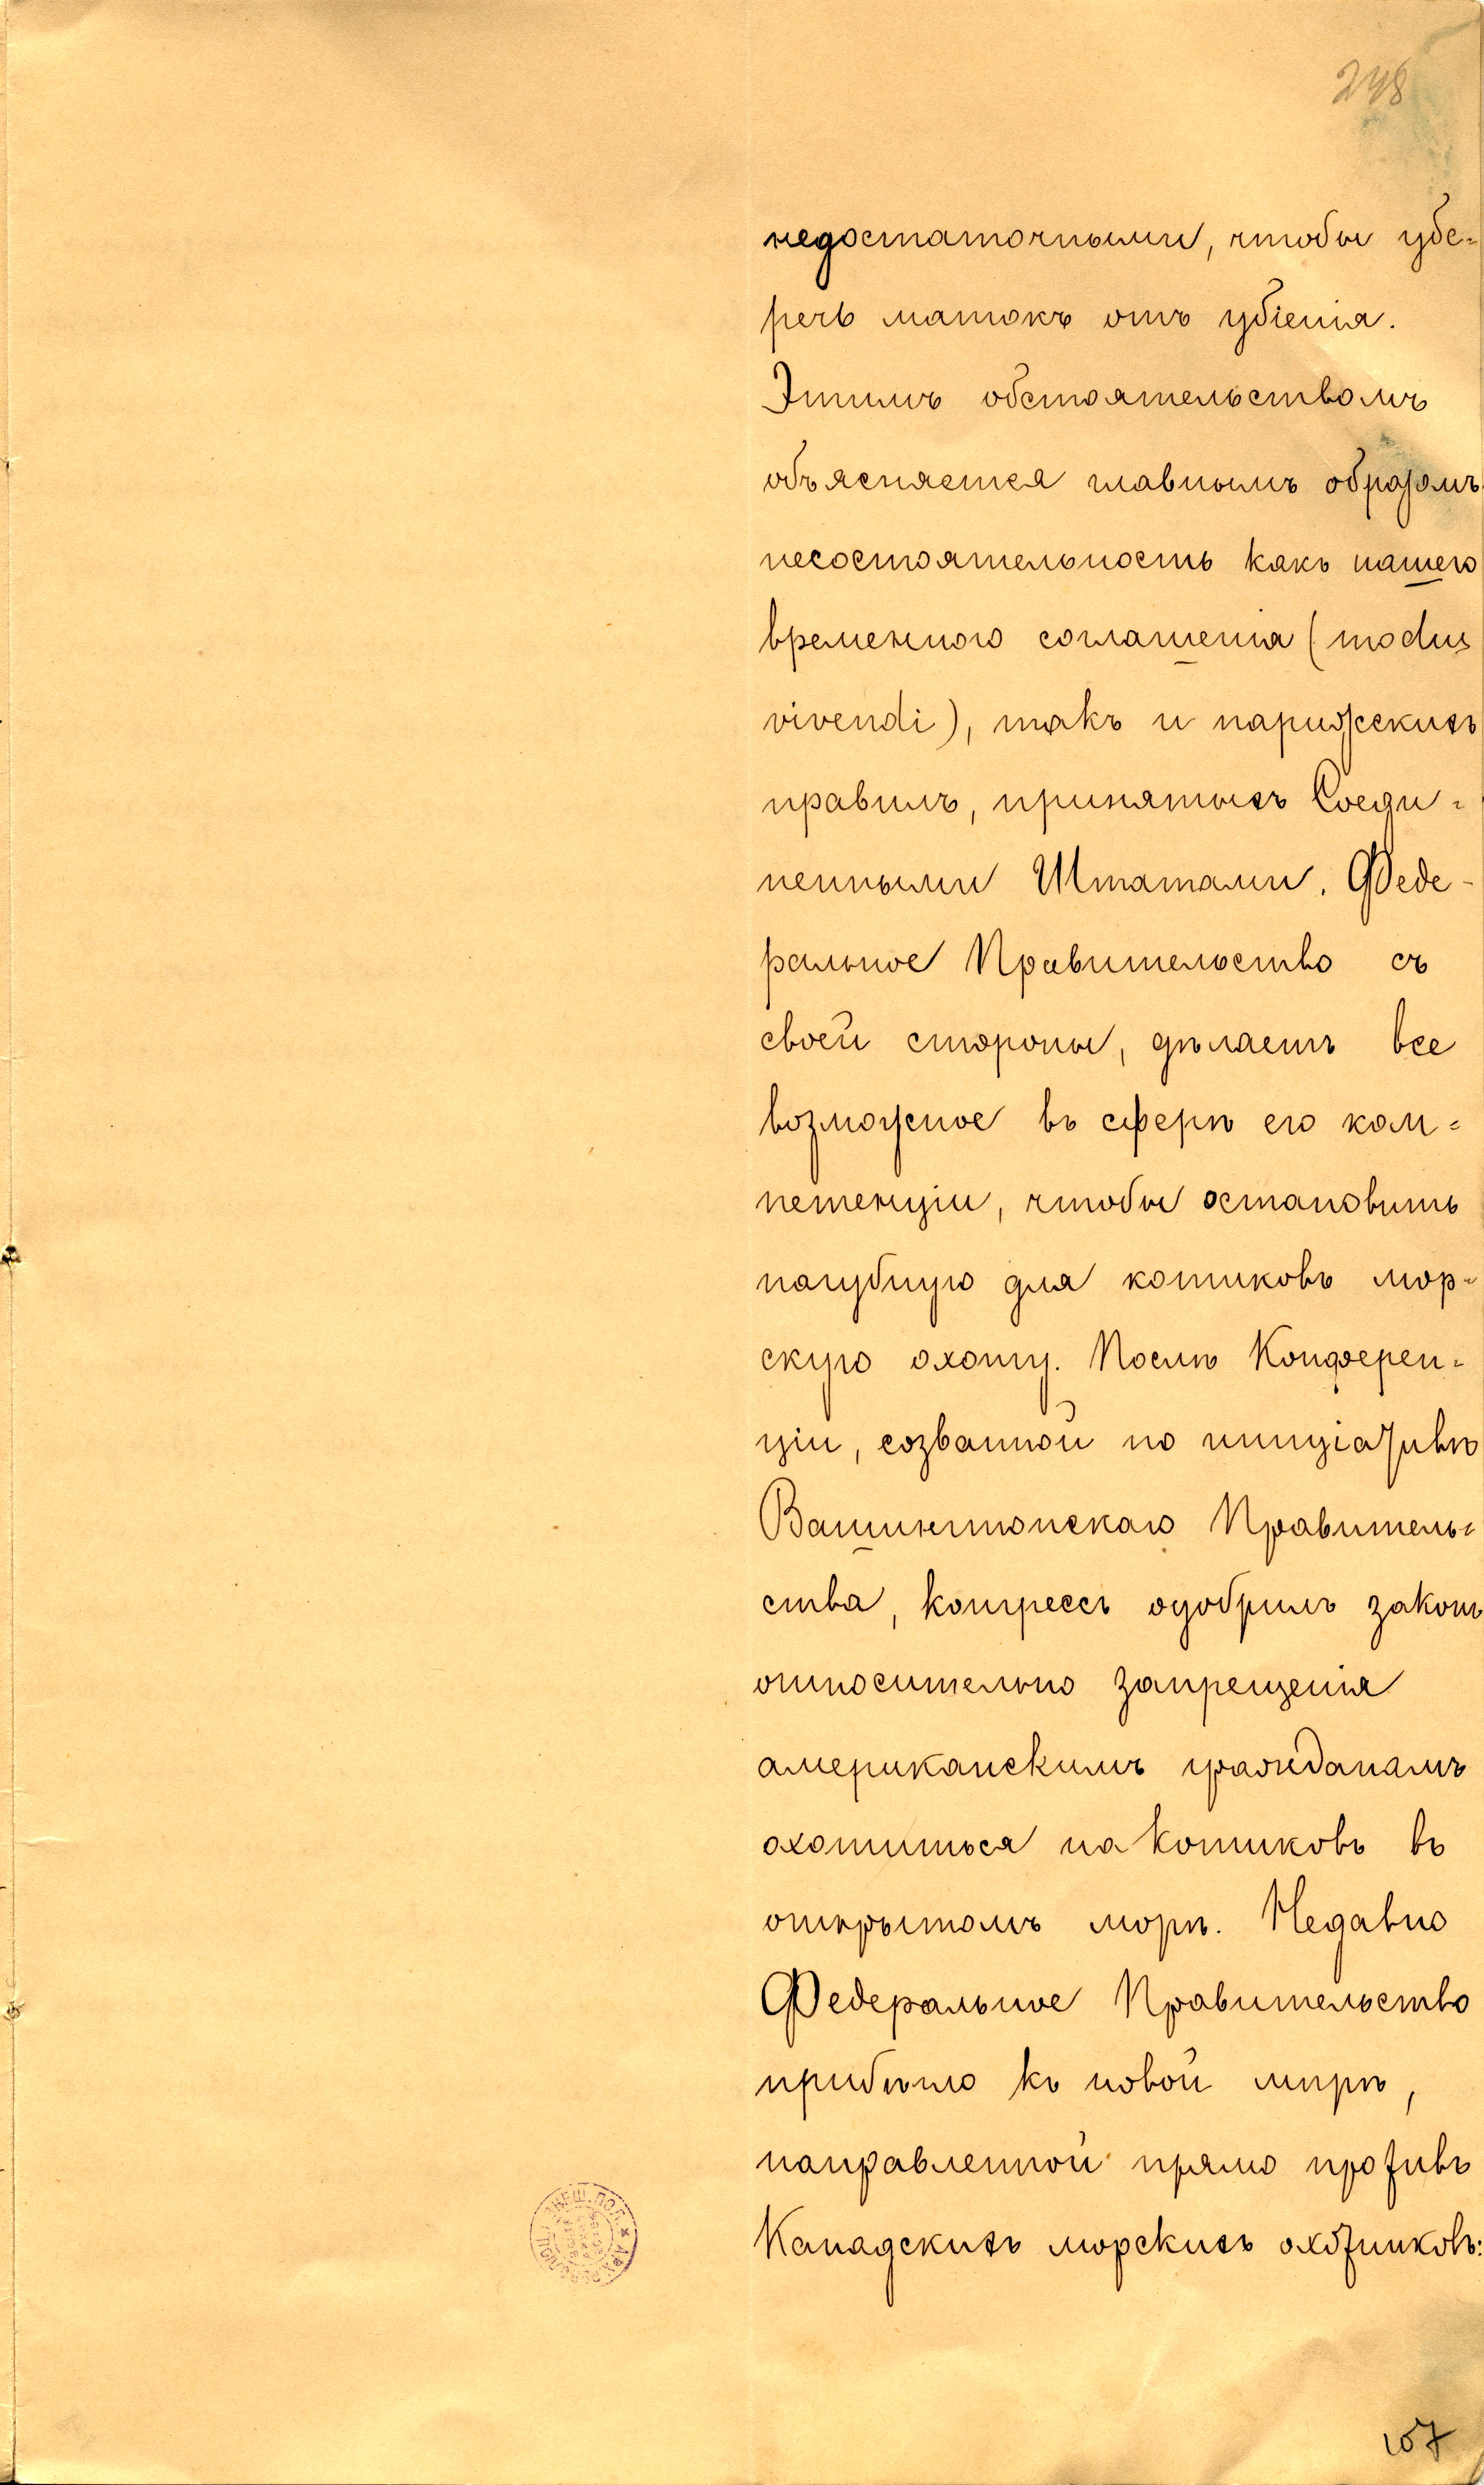 248
недостаточными, чтобы убе-
речь матокъ отъ убіенія.
Этимъ обстоятельствомъ
объясняется главнымъ образомъ
несостоятельность какъ нашего
временного соглашенія (modus
vivendi), такъ и парижскихъ
правилъ, принятыхъ Соеди-
ненными Штатами. Феде-
ральное Правительство съ
своей стороны, дѣлаетъ все
возможное въ сферѣ его ком-
петенціи, чтобы остановить
пагубную для котиковъ мор-
скую охоту. Послѣ Конферен-
ціи, созванной по инищіативѣ
Вашингтонскаго Правитель-
ства, конгрессъ одобрилъ законъ
относительно запрещенія
американскимъ гражданамъ
охотиться на котиковъ въ
открытомъ морѣ. Недавно
Федеральное Правительство
прибѣгло къ новой мѣрѣ,
направленной прямо противъ
Канадскихъ морскихъ охотниковъ:
107